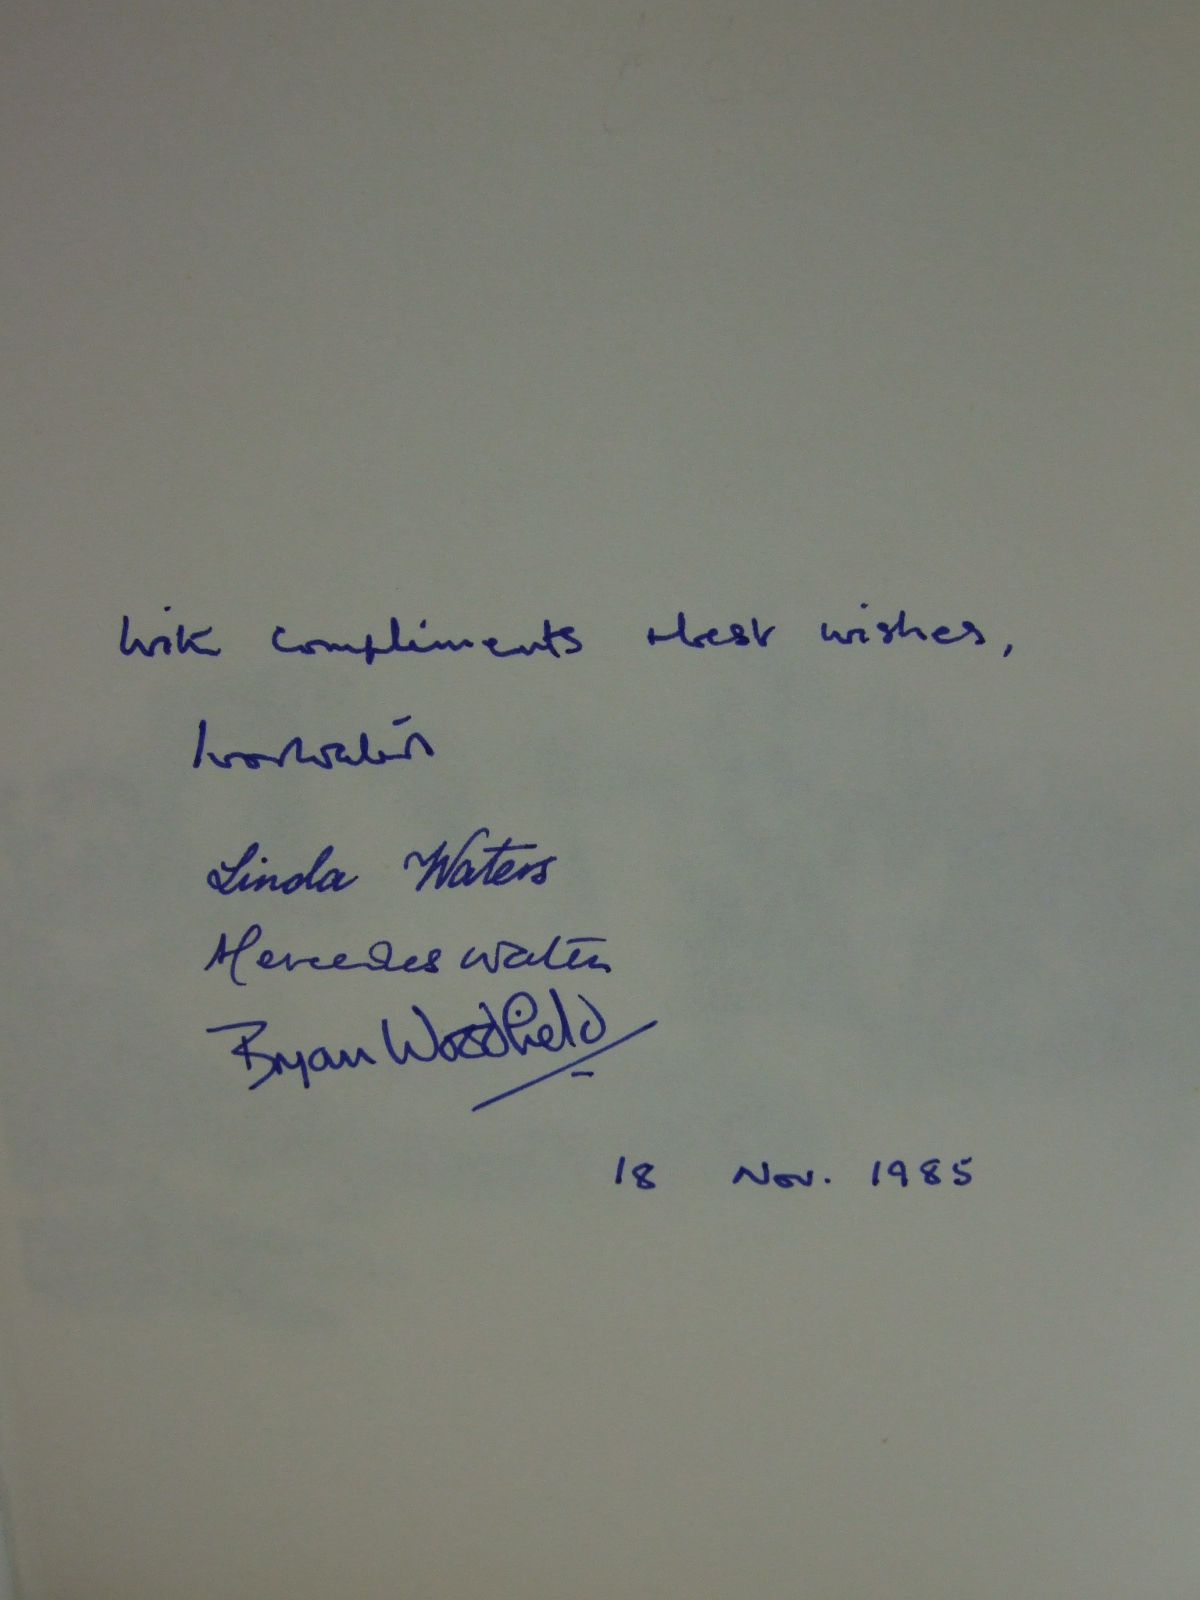 With compliments + best wishes,
Ivor Waters
Linda Waters
Mercedes Waters
Bryan Woodfield
18 Nov. 1985